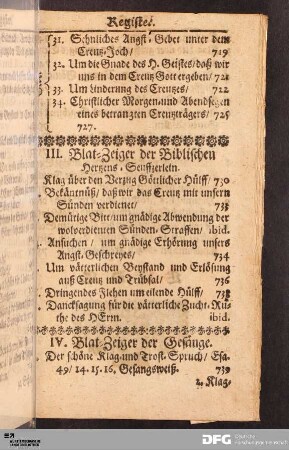 Register.
31. Sehnliches Angst-Gebet unter dem
Creutz-Joch/ 719
32. Um die Gnade des H. Geistes/ daß wir
uns in dem Creutz Gott ergeben/ 721
33. Um Linderung des Creutzes/ 722
34. Christlicher Morgen und Abendsegen
eines betrangten Creutzträgers/ 725
727.
III. Blat-Zeiger der Biblischen
Hertzens-Seuffzerlein.
Klag über den Verzug Götlicher Hülff/ 730
Bekäntnüß/ daß wir das Creutz mit unsern
Sünden verdienet/ 733
Demütige Bitt/ um gnädige Abwendung der
wolverdienten Sünden-Straffen/ ibid.
Ansuchen/ um gnädige Erhörung unsers
Angst-Geschreyes/ 734
Um väterlichen Beystand und Erlösung
auß Creutz und Trübsal/ 736
Dringendes Flehen um eilende Hülff/
Dancksagung für die väterliche Zucht-Ru-
the des HErrn. ibid.
IV. Blat-Zeiger der Gesänge.
Der schöne Klag und Trost-Spruch/ Esa.
49/ 14. 15. 16. Gesangsweiß. 739
Klag-
DFG